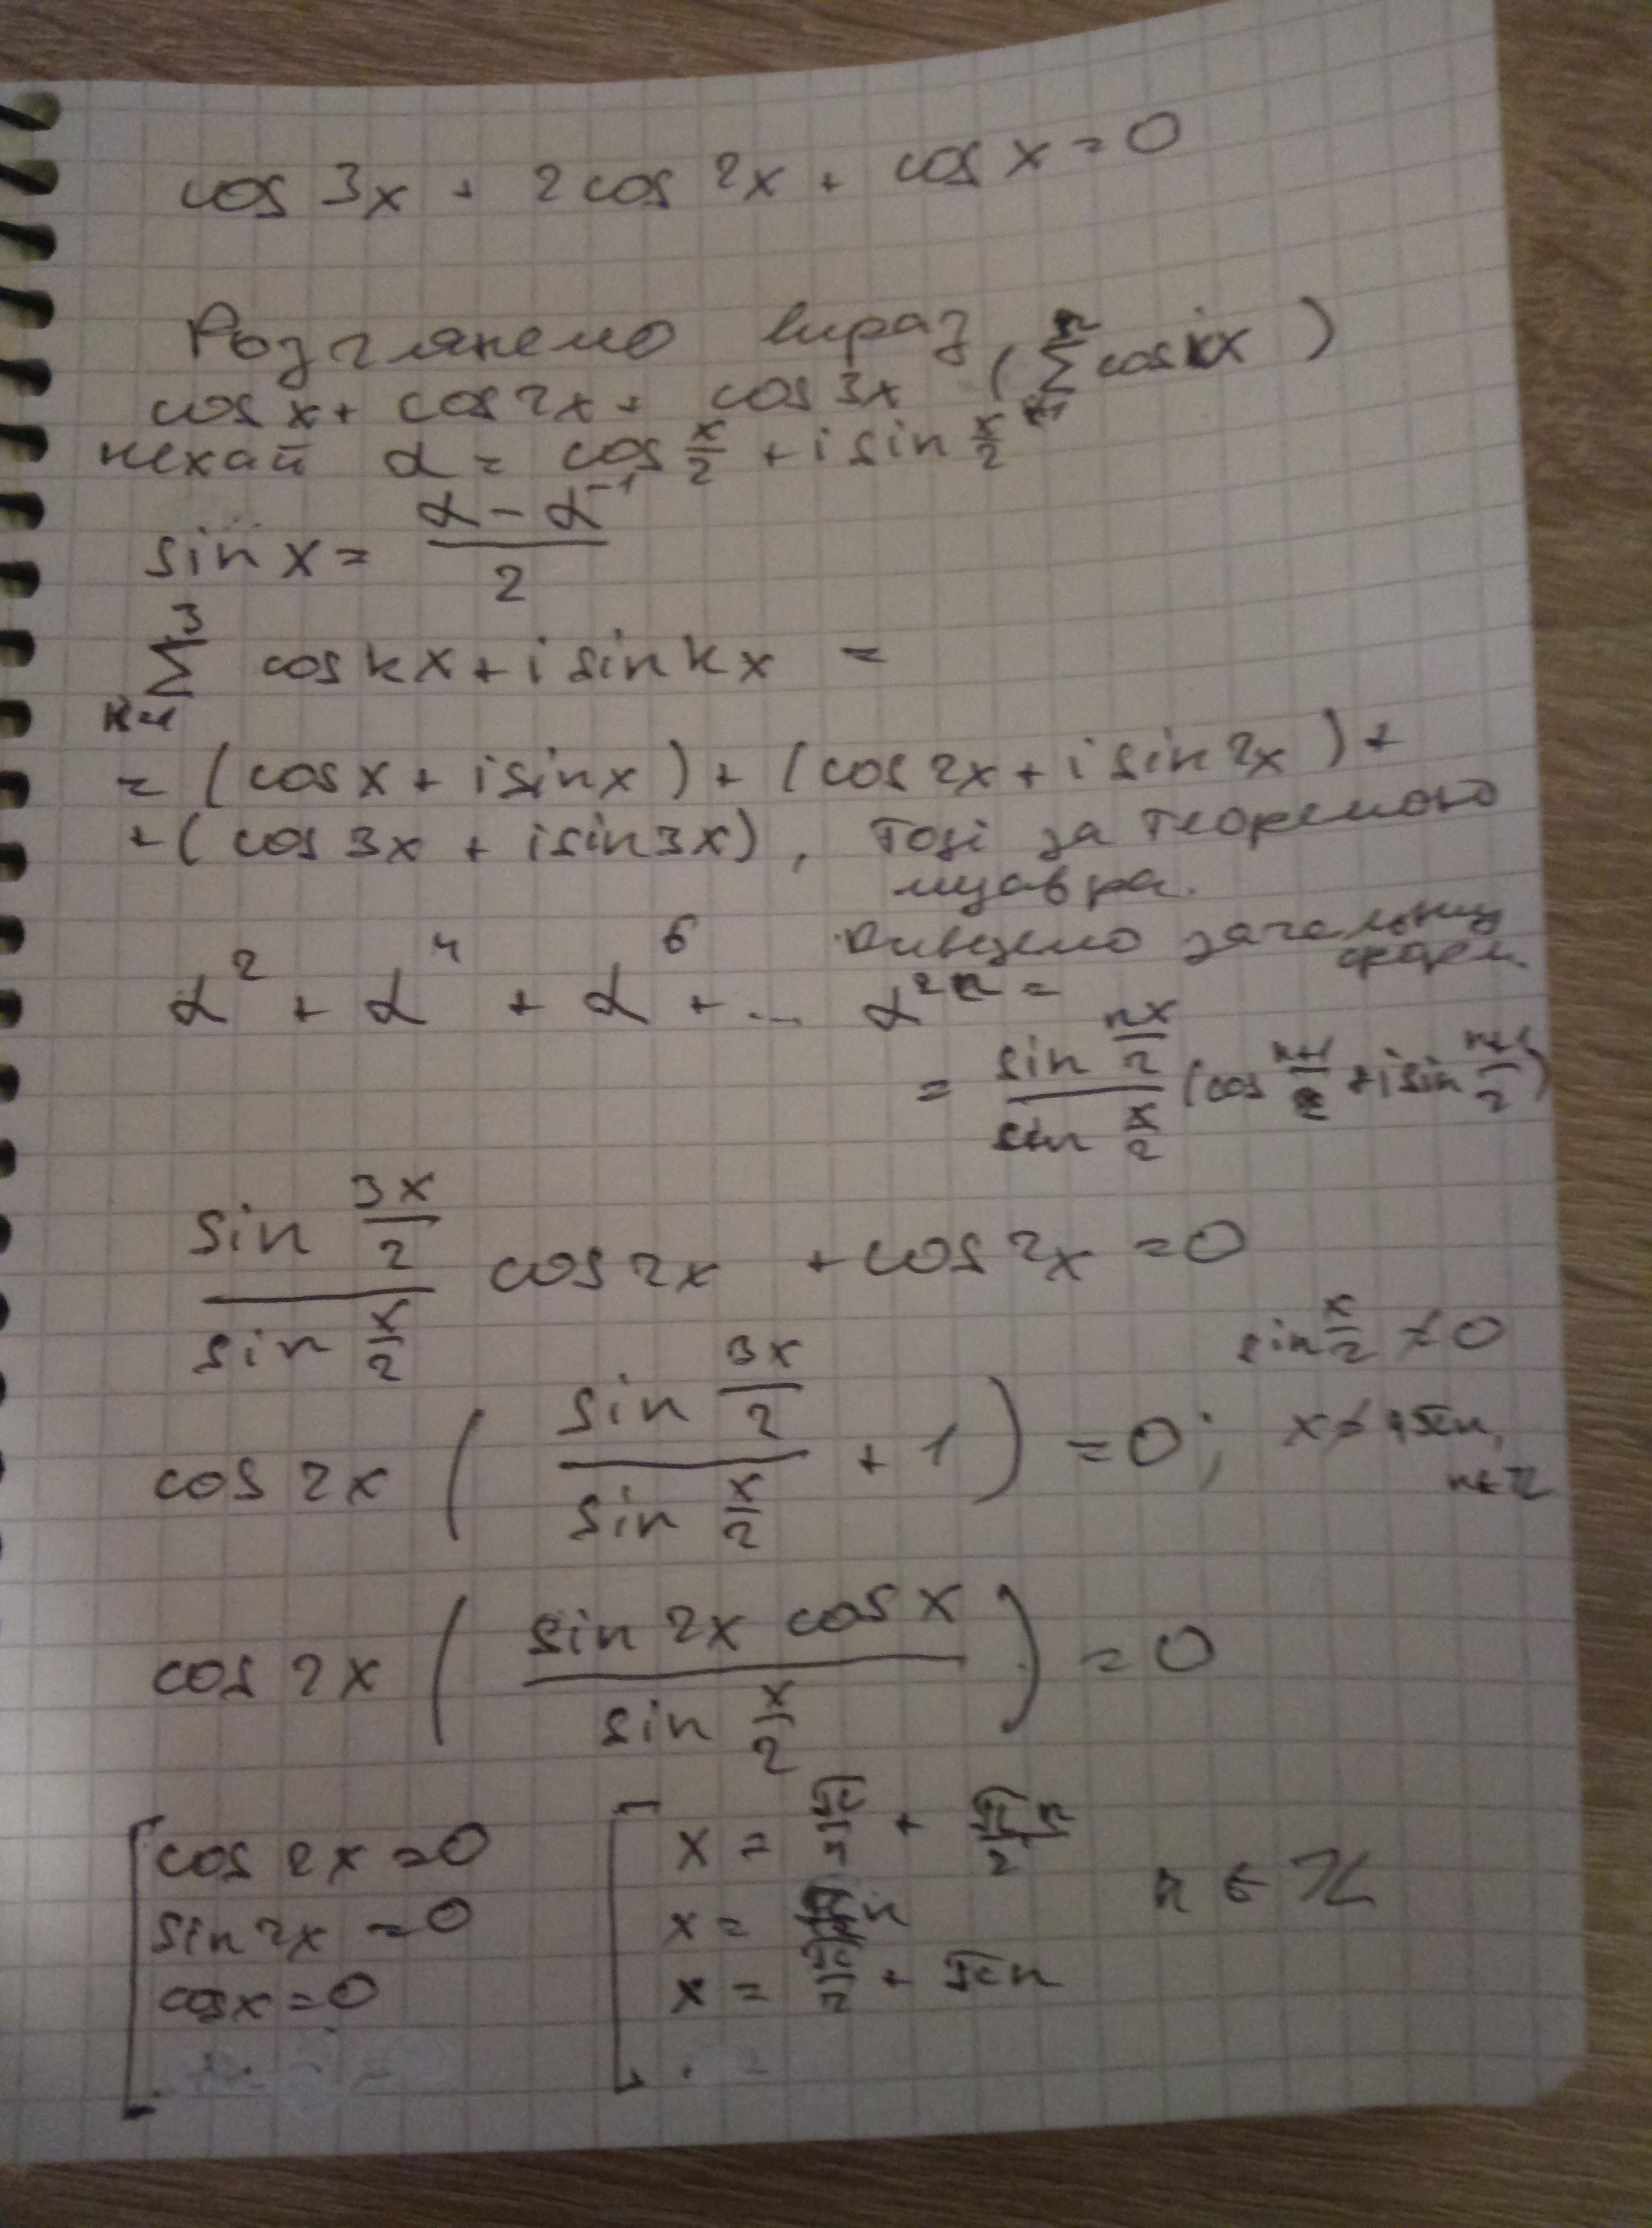 cos 3x + 2cos 2x + cos x = 0
Розглянемо вираз
cos x + cos 2x + cos 3x (∑ cos kx)
нехай α = cos x/2 + i sin x/2
sin x = (α - α⁻¹)/2
∑_{k=1}^{3} cos kx + i sin kx =
= (cos x + i sin x) + (cos 2x + i sin 2x) +
+ (cos 3x + i sin 3x), Тоді за теоремою
муавра.
Виведемо загальну
α² + α⁴ + α⁶ + ... α²ⁿ =
= (sin nx/2)/(sin x/2) (cos (n+1)/2 + i sin (n+1)/2)
(sin 3x/2)/(sin x/2) cos 2x + cos 2x = 0
sin x/2 ≠ 0
cos 2x ((sin 3x/2)/(sin x/2) + 1) = 0; x ≠ 2πn,
n ∈ ℤ
cos 2x ((sin 2x cos x)/(sin x/2)) = 0
[cos 2x = 0 [x = π/4 + πn/2
sin 2x = 0 x = n ∈ ℤ
cos x = 0 x = π/2 + πn